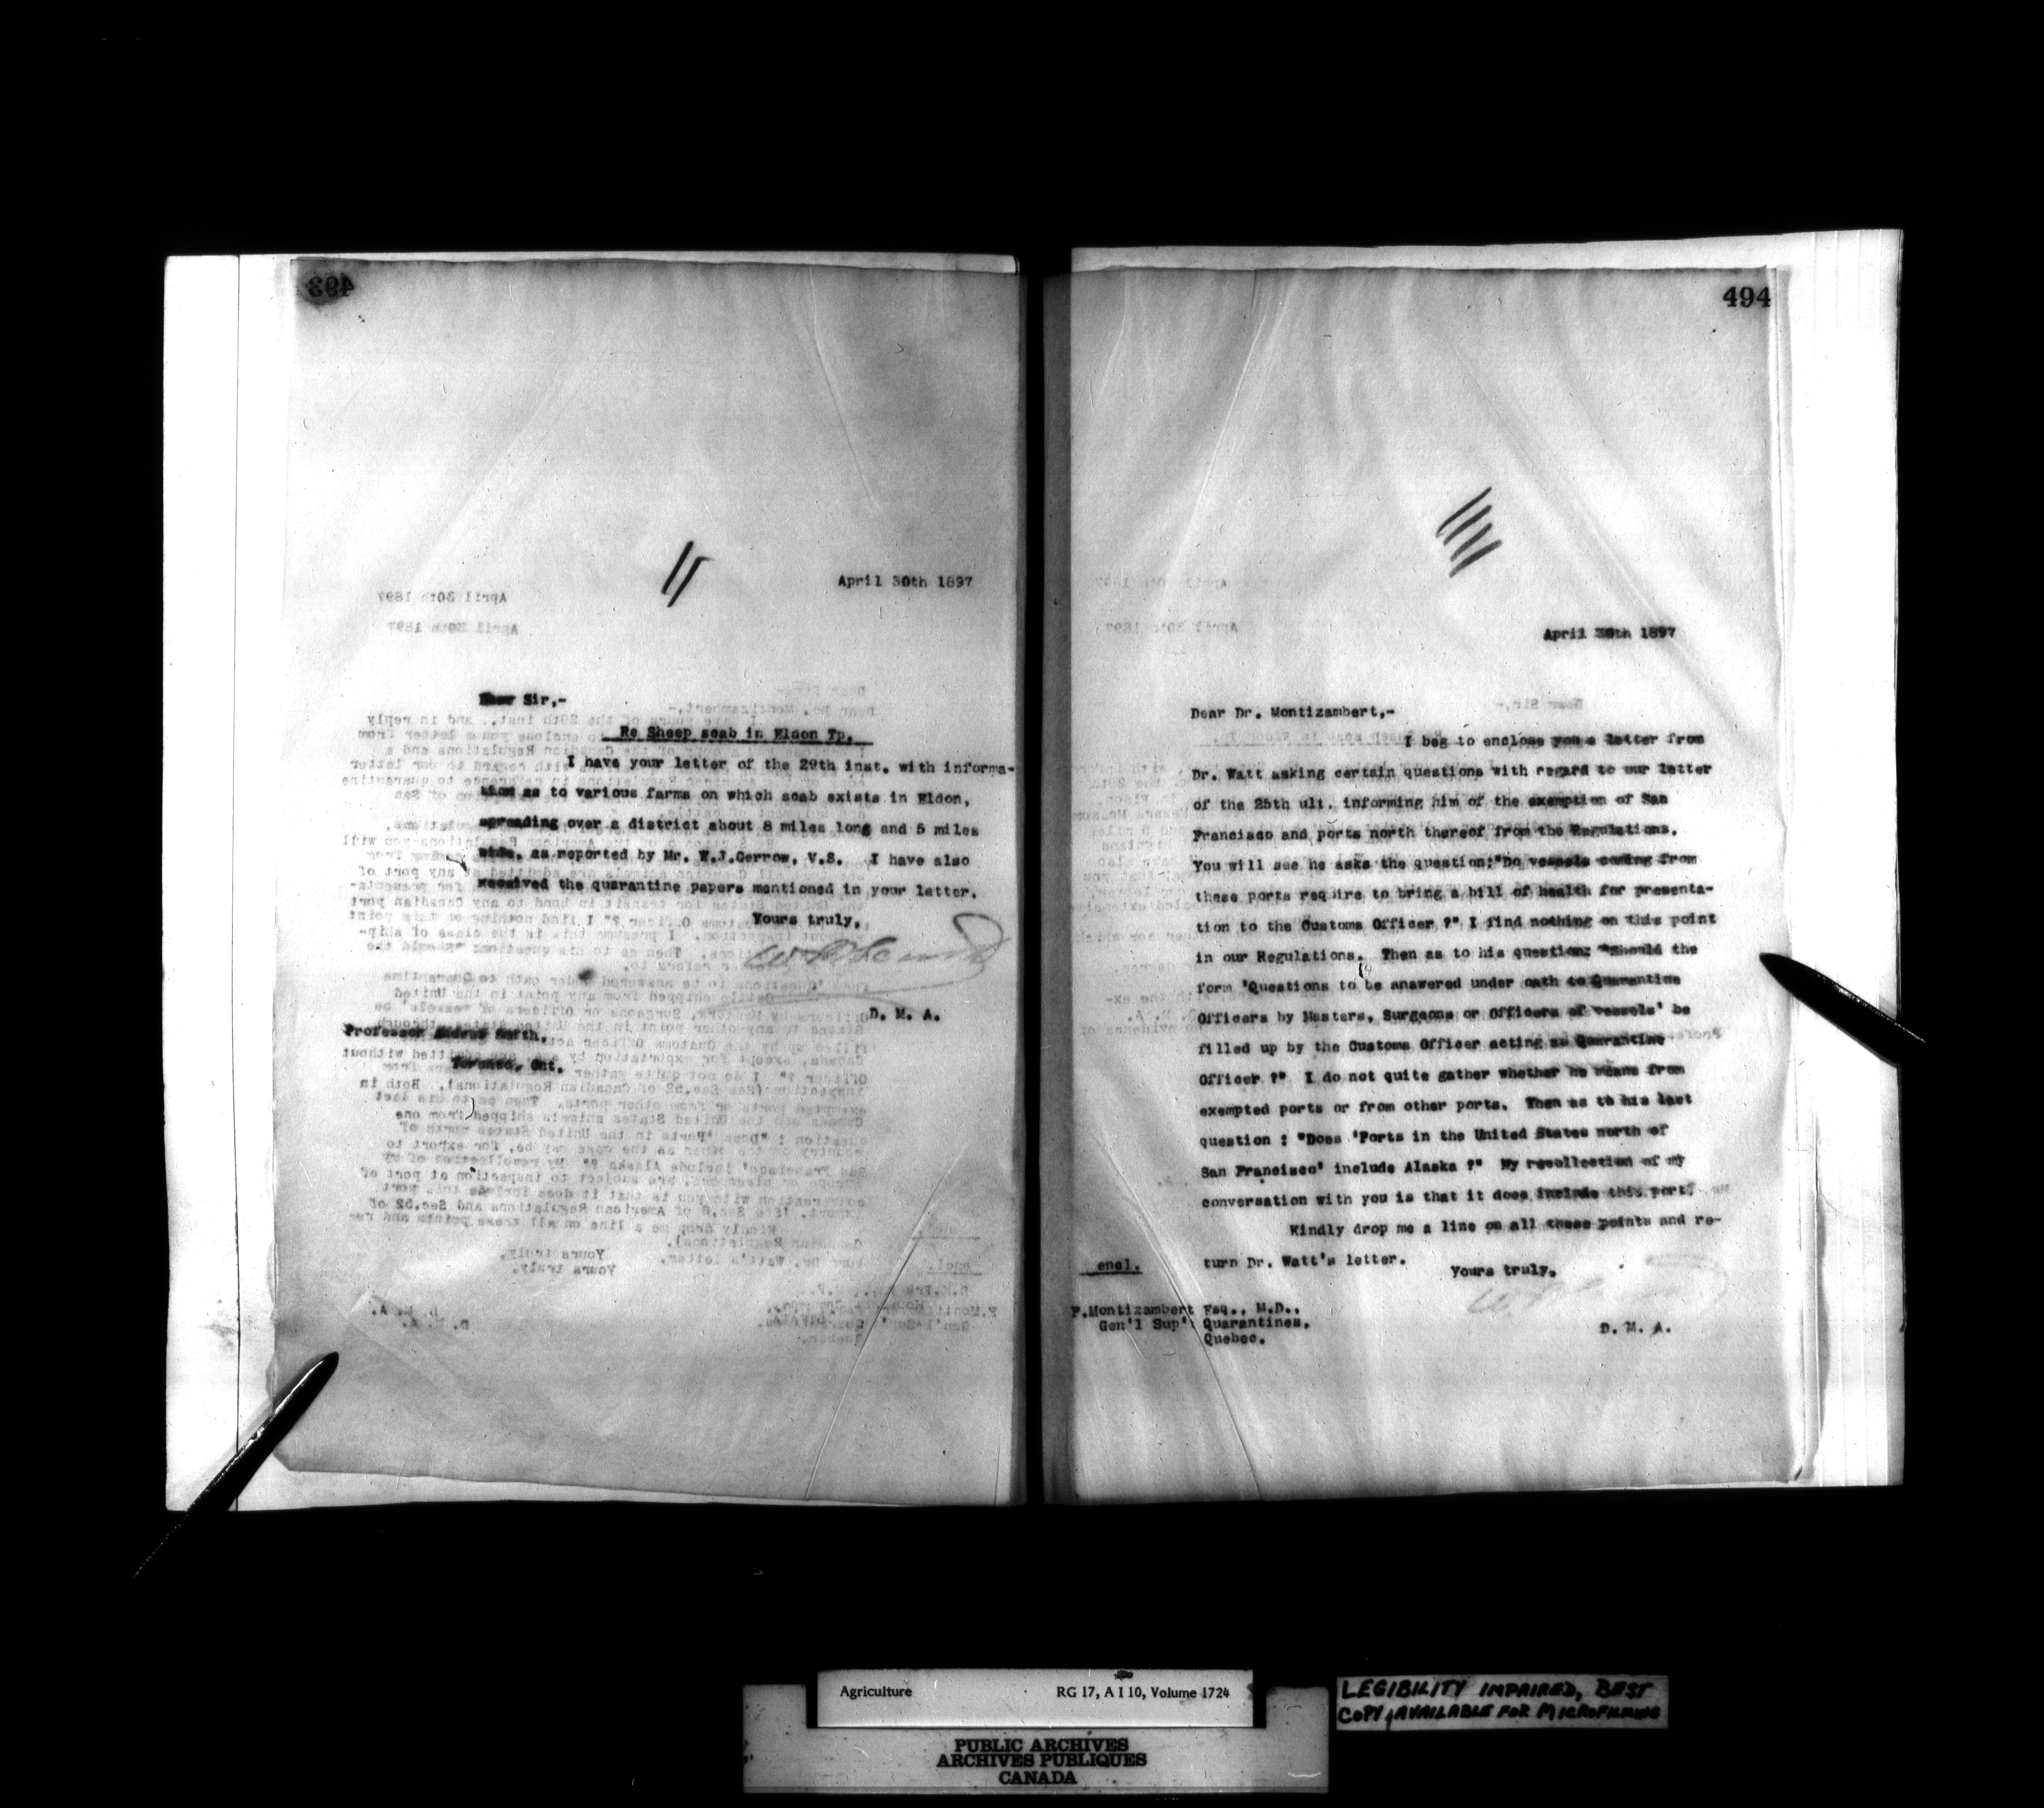 April 30th 1897
Dear Sir,-
Re Sheep scab in Eldon Tp.
I have your letter of the 29th inst. with informa-
tion as to various farms on which scab exists in Eldon,
spreading over a district about 8 miles long and 5 miles
wide, as reported by Mr. W.J.Gerrow, V.S. I have also
received the quarantine papers mentioned in your letter.
Yours truly,
D. M. A.
Professor Andrew Smith,
Toronto, Ont.
494
April 30th 1897
Dear Dr. Montizambert,-
I beg to enclose you a letter from
Dr. Watt asking certain questions with regard to our letter
of the 25th ult. informing him of the exemption of San
Francisco and ports north thereof from the Regulations.
You will see he asks the question:"Do vessels coming from
these ports require to bring a bill of health for presenta-
tion to the Customs Officer ?" I find nothing on this point
in our Regulations. Then as to his question: "Should the
form 'Questions to be answered under oath to Quarantine
Officers by Masters, Surgeons or Officers of vessels' be
filled up by the Customs Officer acting as Quarantine
Officer ?" I do not quite gather whether he means from
exempted ports or from other ports. Then as to his last
question : "Does 'Ports in the United States north of
San Francisco' include Alaska ?" My recollection of my
conversation with you is that it does include this port.
Kindly drop me a line on all these points and re-
turn Dr. Watt's letter.
Yours truly,
encl.
F.Montizambert Esq., M.D.,
Gen'l Sup't Quarantines,
Quebec.
D. M. A.
Agriculture RG 17, A I 10, Volume 1724
PUBLIC ARCHIVES
ARCHIVES PUBLIQUES
CANADA
LEGIBILITY IMPAIRED, BEST
COPY AVAILABLE FOR MICROFILMING